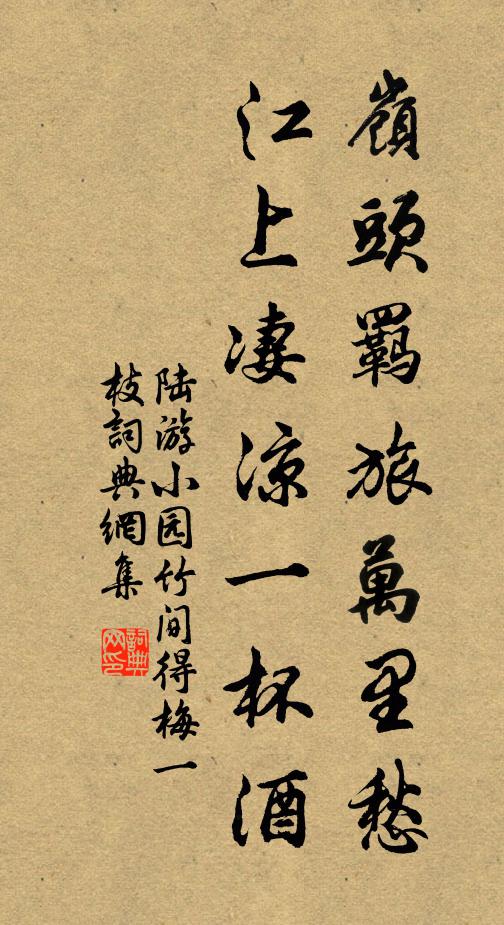 嶺頭羈旅萬里愁
江上凄涼一杯酒
陆游小园竹间得梅一
枝詞典網集
詞典
网印